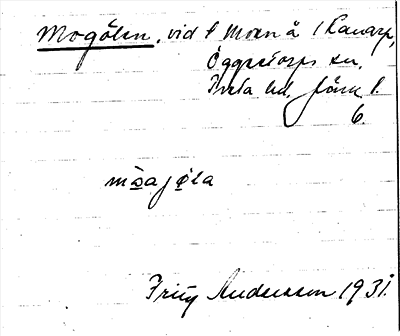 Mogölen, vid f Moen å i Kanarp,
Öggestorps sn.
Tveta hd, Jönk l.
6.
måsajøla
Fritz Andersson 1931.